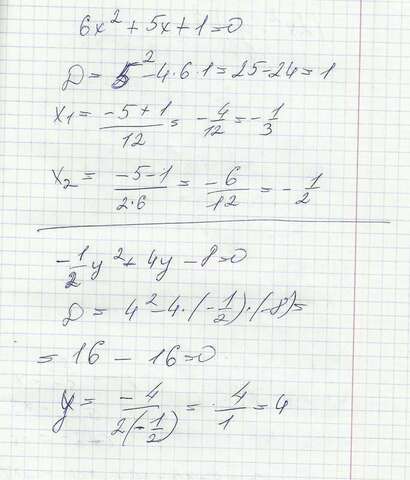 6x² + 5x + 1 = 0
D = 5² - 4·6·1 = 25 - 24 = 1
x₁ = (-5 + 1)/12 = -4/12 = -1/3
x₂ = (-5 - 1)/(2·6) = -6/12 = -1/2
-1/2 y² + 4y - 8 = 0
D = 4² - 4·(-1/2)·(-8) =
= 16 - 16 = 0
y = -4/(2(-1/2)) = 4/1 = 4